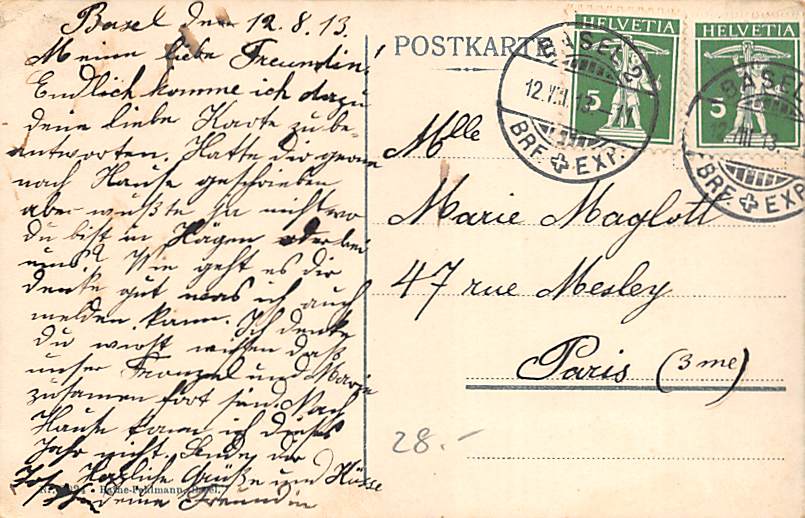 Basel den 12.8.13.
Meine liebe Freundin!
Endlich komme ich dazu
deine liebe Karte zu be-
antworten. Hatte dir gerne
nach Hause geschrieben
aber wußte ja nicht wo
du bist in Hägen oder bei
uns? Wie geht es dir
denke gut was ich auch
melden kann. Ich denke
du wirst wissen daß
unser Franzel und Marie
zusamen fort sind. Nach
Hause kann ich dieses
Jahr nicht. Sende dir
Herzliche Grüße und Küsse
deine Freundin
POSTKARTE
HELVETIA
5
HELVETIA
5
BASEL 2
12.VIII.13.
BRF. EXP.
BASEL
12.VIII.13.
BRF. EXP.
Mlle
Marie Maglott
47 rue Mesley
Paris (3me)
28.-